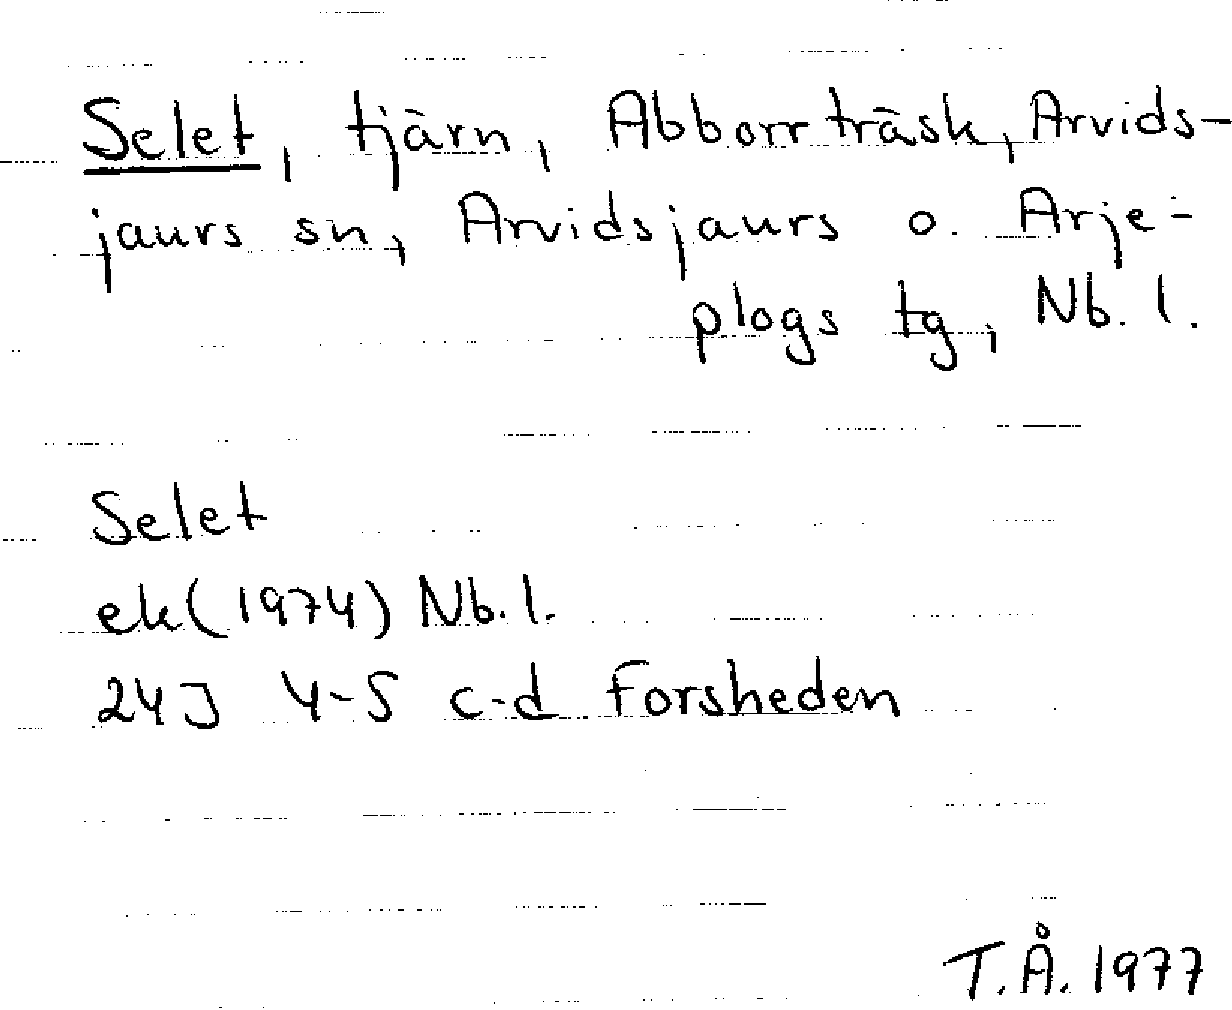 Selet, tjärn, Abborrträsk, Arvids-
jaurs sn, Arvidsjaurs o. Arje-
plogs tg, Nb. l.
Selet
ek (1974) Nb. l.
24J 4-5 c-d Forsheden
T.Å. 1977